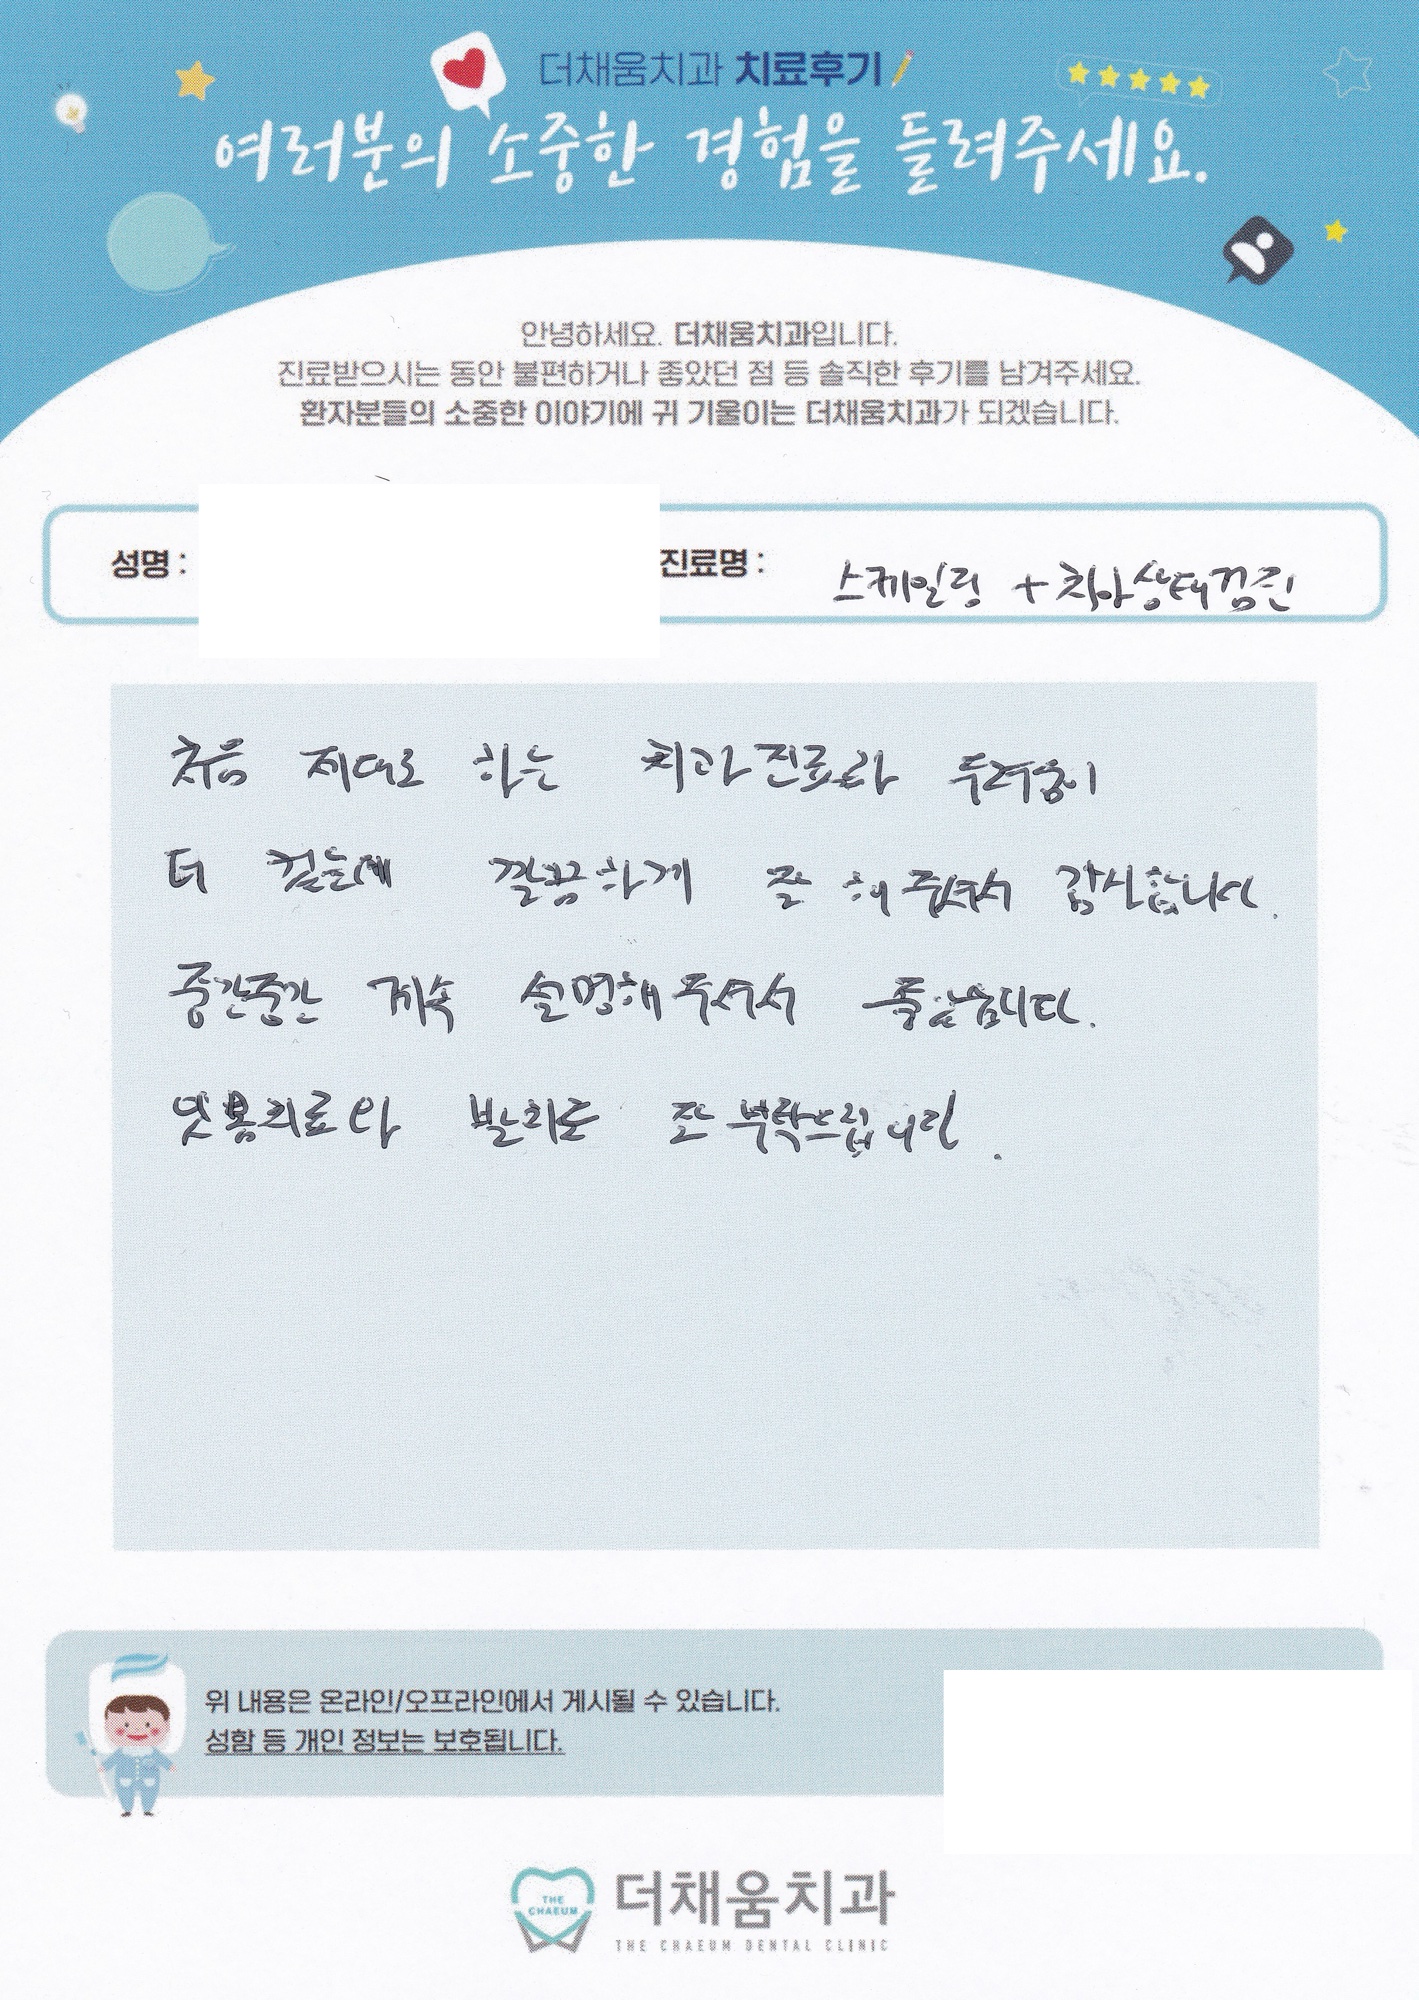 더채움치과 치료후기
여러분의 소중한 경험을 들려주세요.
안녕하세요. 더채움치과입니다.
진료받으시는 동안 불편하거나 좋았던 점 등 솔직한 후기를 남겨주세요.
환자분들의 소중한 이야기에 귀 기울이는 더채움치과가 되겠습니다.
성명 : 진료명 : 스케일링 + 치아상태검진
처음 제대로 하는 치과진료라 두려움이
더 컸는데 깔끔하게 잘 해주셔서 감사합니다.
중간중간 계속 설명해주셔서 좋았습니다.
잇몸치료와 발치도 잘 부탁드립니다.
위 내용은 온라인/오프라인에서 게시될 수 있습니다.
성함 등 개인 정보는 보호됩니다.
THE CHAEUM
더채움치과
THE CHAEUM DENTAL CLINIC